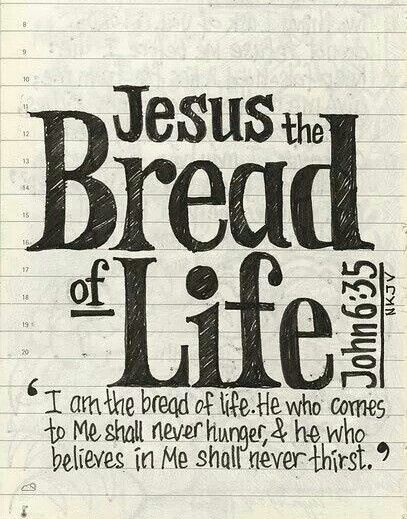 8
9
10
11
Jesus the
12
13
Bread
14
15
16
17
of Life
18
19
20
John 6:35
NKJV
‘ I am the bread of life. He who comes
to Me shall never hunger, & he who
believes in Me shall never thirst. ’